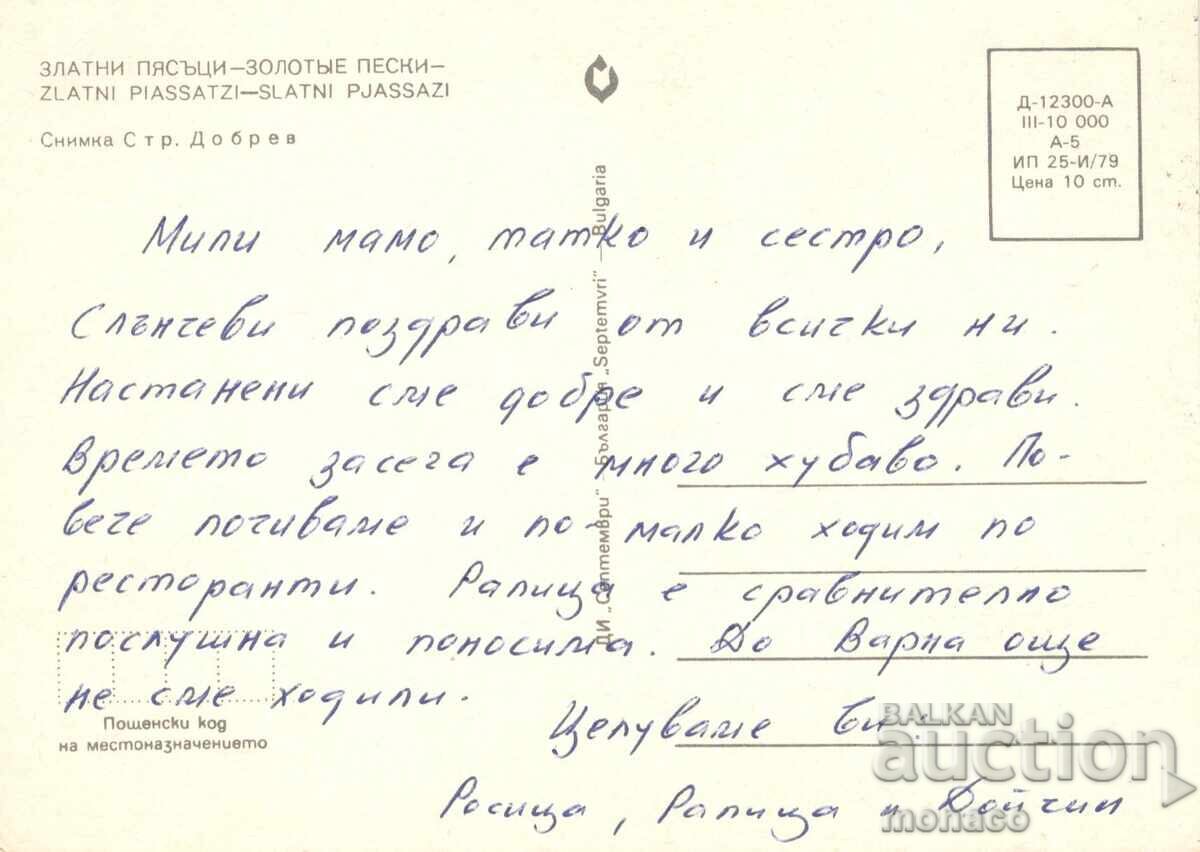 ЗЛАТНИ ПЯСЪЦИ—ЗОЛОТЫЕ ПЕСКИ—
ZLATNI PIASSATZI—SLATNI PJASSAZI
Снимка Стр. Добрев
Д-12300-А
III-10 000
А-5
ИП 25-И/79
Цена 10 ст.
ДИ „Септември" — България „Septemvri" — Bulgaria
Мили мамо, татко и сестро,
Слънчеви поздрави от всички ни.
Настанени сме добре и сме здрави.
Времето засега е много хубаво. По-
вече почиваме и по-малко ходим по
ресторанти. Ралица е сравнително
послушна и поносима. До Варна още
не сме ходили.
Целуваме ви:
Росица, Ралица и Дойчин
Пощенски код
на местоназначението
BALKAN
auction
monaco